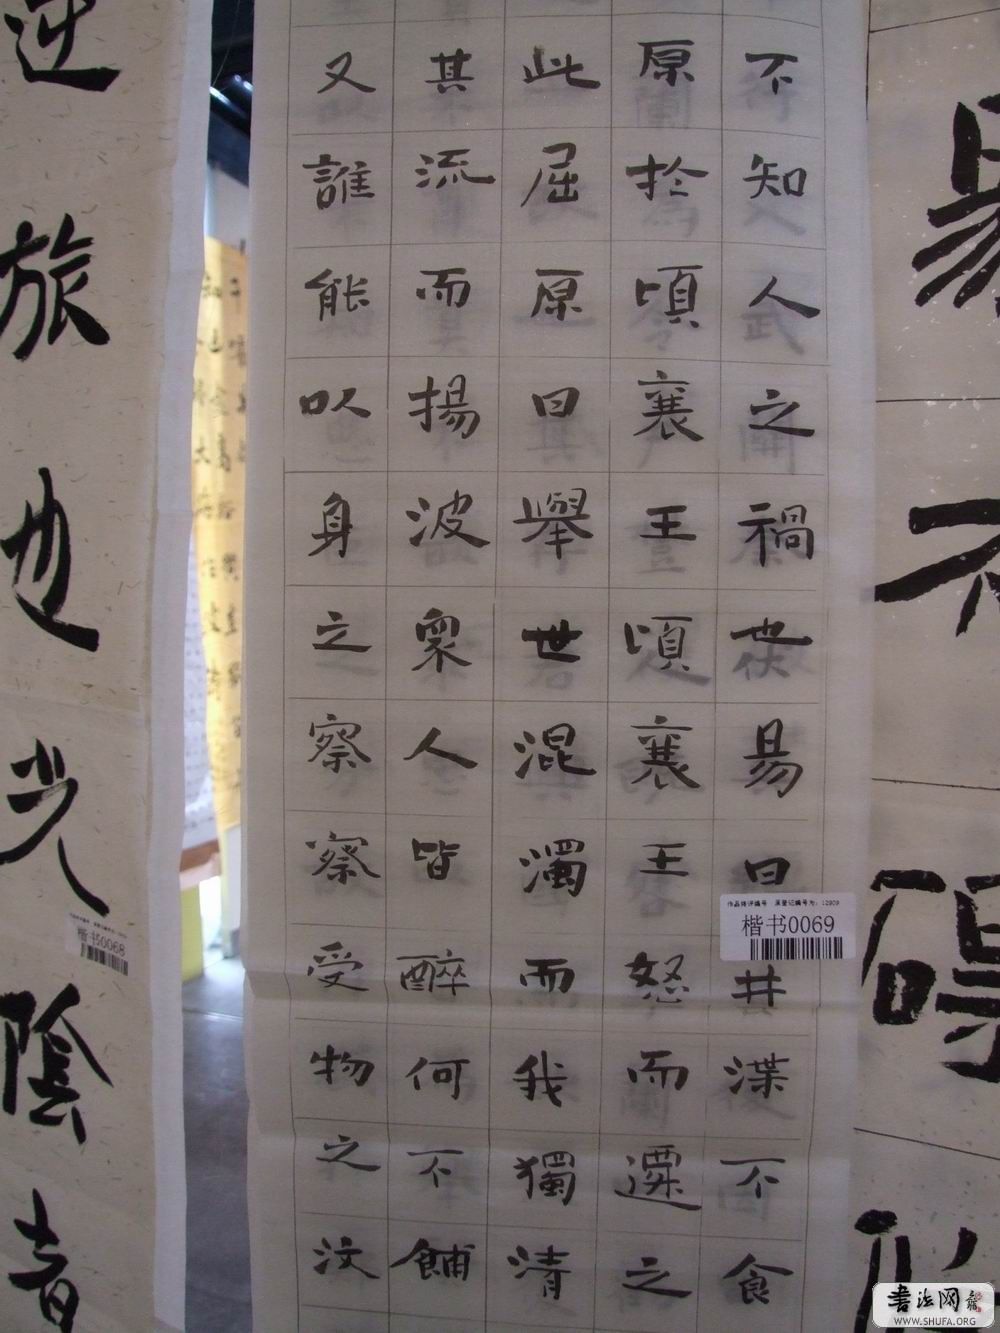 不知人之禍世易曰井渫不食
原於頃襄王頃襄王怒而遷之
此屈原曰舉世混濁而我獨清
其流而揚波眾人皆醉何不餔
又誰能以身之察察受物之汶
作品终评编号
楷书0069
逆旅也光陰者
楷书0068
易不
書法网
WWW.SHUFA.ORG